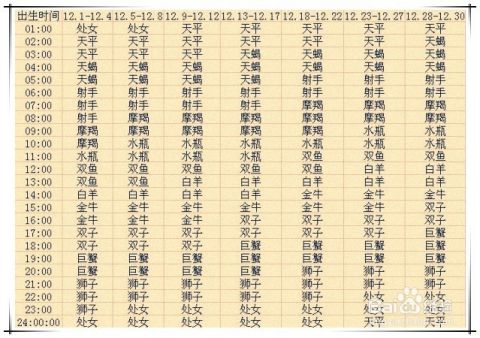 出生时间 12.1-12.4 12.5-12.8 12.9-12.12 12.13-12.17 12.18-12.22 12.23-12.27 12.28-12.30
01:00 处女 处女 天平 天平 天平 天平 天平
02:00 天平 天平 天平 天平 天平 天平 天蝎
03:00 天平 天平 天平 天蝎 天蝎 天蝎 天蝎
04:00 天蝎 天蝎 天蝎 天蝎 天蝎 天蝎 天蝎
05:00 天蝎 天蝎 天蝎 天蝎 射手 射手 射手
06:00 射手 射手 射手 射手 射手 射手 射手
07:00 射手 射手 射手 射手 摩羯 摩羯 摩羯
08:00 射手 摩羯 摩羯 摩羯 摩羯 摩羯 摩羯
09:00 摩羯 摩羯 摩羯 摩羯 摩羯 水瓶 水瓶
10:00 摩羯 水瓶 水瓶 水瓶 水瓶 水瓶 水瓶
11:00 水瓶 水瓶 水瓶 水瓶 双鱼 双鱼 双鱼
12:00 双鱼 双鱼 双鱼 双鱼 双鱼 白羊 白羊
13:00 双鱼 双鱼 白羊 白羊 白羊 白羊 白羊
14:00 白羊 白羊 白羊 白羊 金牛 金牛 金牛
15:00 金牛 金牛 金牛 金牛 金牛 金牛 双子
16:00 金牛 金牛 金牛 双子 双子 双子 双子
17:00 双子 双子 双子 双子 双子 双子 巨蟹
18:00 双子 双子 双子 巨蟹 巨蟹 巨蟹 巨蟹
19:00 巨蟹 巨蟹 巨蟹 巨蟹 巨蟹 巨蟹 巨蟹
20:00 巨蟹 巨蟹 巨蟹 巨蟹 狮子 狮子 狮子
21:00 狮子 狮子 狮子 狮子 狮子 狮子 狮子
22:00 狮子 狮子 狮子 狮子 狮子 处女 处女
23:00 狮子 处女 处女 处女 处女 处女 处女
24:00:00 处女 处女 处女 处女 处女 天平 天平